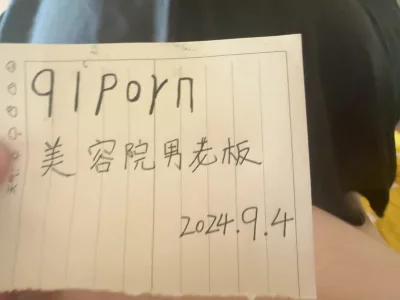 91porn
美容院男老板
2024.9.4